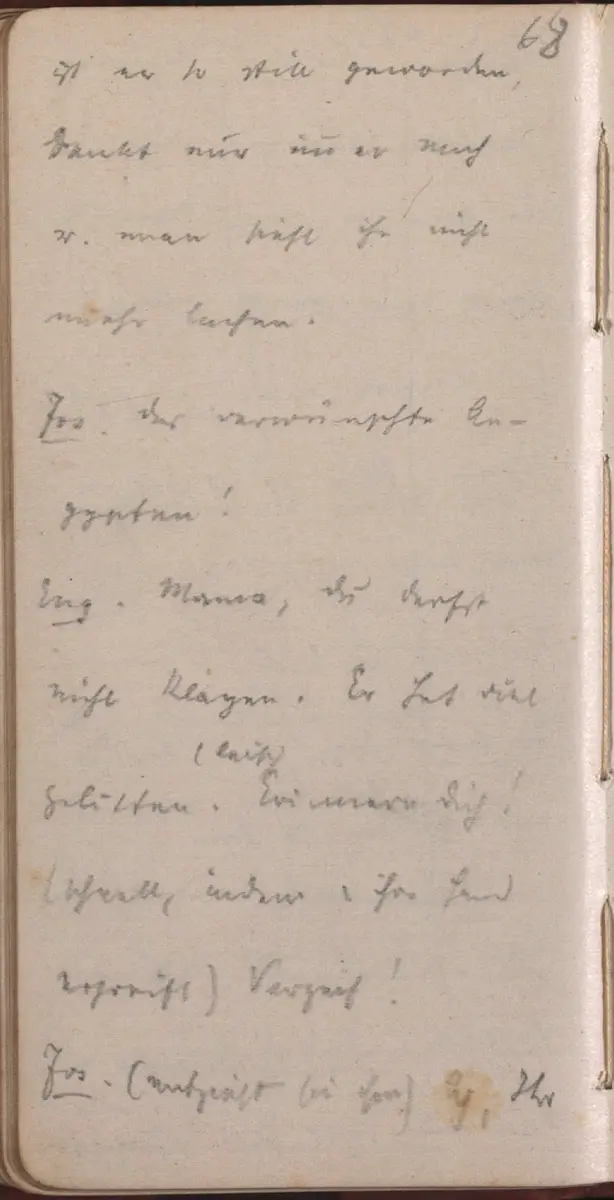 68
ist er so still geworden,
denkt nur im̅er nach
u. man sieht ihn nicht
mehr lachen.
Jos. der verwünschte
!
Eug. Mama, du darfst
nicht klagen. Er hat viel
(leise)
gelitten. Erinnere dich!
(schnell, indem er ihre Hand
ergreift) Verzeih!
Jos. (entzieht sie ihm) Ihr